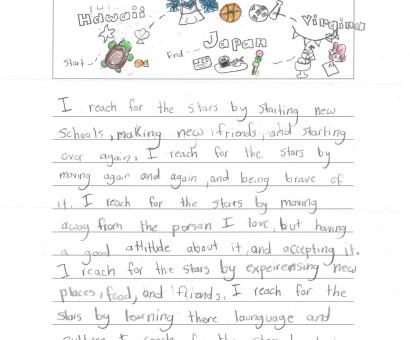 Hawaii
Virgina
Japan
Start
End
I reach for the stars by starting new
schools, making new friends, and starting
over again. I reach for the stars by
moving again and again, and being brave of
it. I reach for the stars by moving
away from the person I love, but having
a good attitude about it, and accepting it.
I reach for the stars by expeirensing new
places, food, and friends. I reach for the
stars by learning there launguage and
culture. I reach for the stars